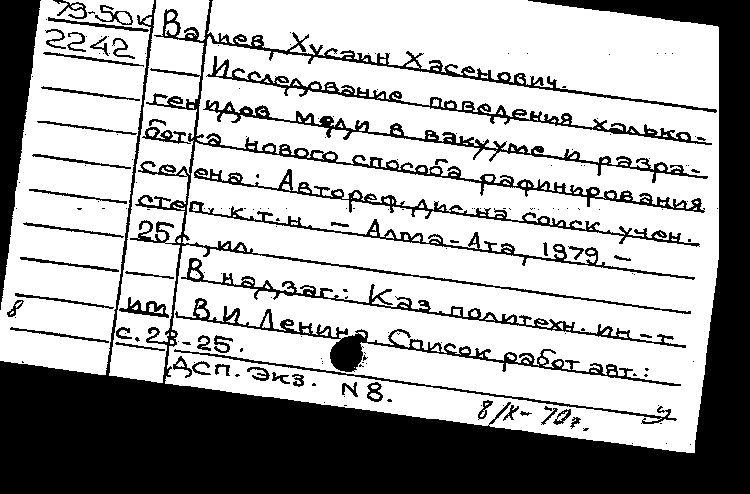 79-50к
2242
Валиев, Хусаин Хасенович.
Исследование поведения халько-
генидов меди в вакууме и разра-
ботка нового способа рафинирования
селена: Автореф. дис. на соиск. учен.
степ. к.т.н. – Алма-Ата, 1979. –
25с., ил.
В надзаг.: Каз. политехн. ин-т
им. В.И. Ленина. Список работ авт.:
с. 23-25.
ДСП. Экз. N 8.
8
8/X-79г.